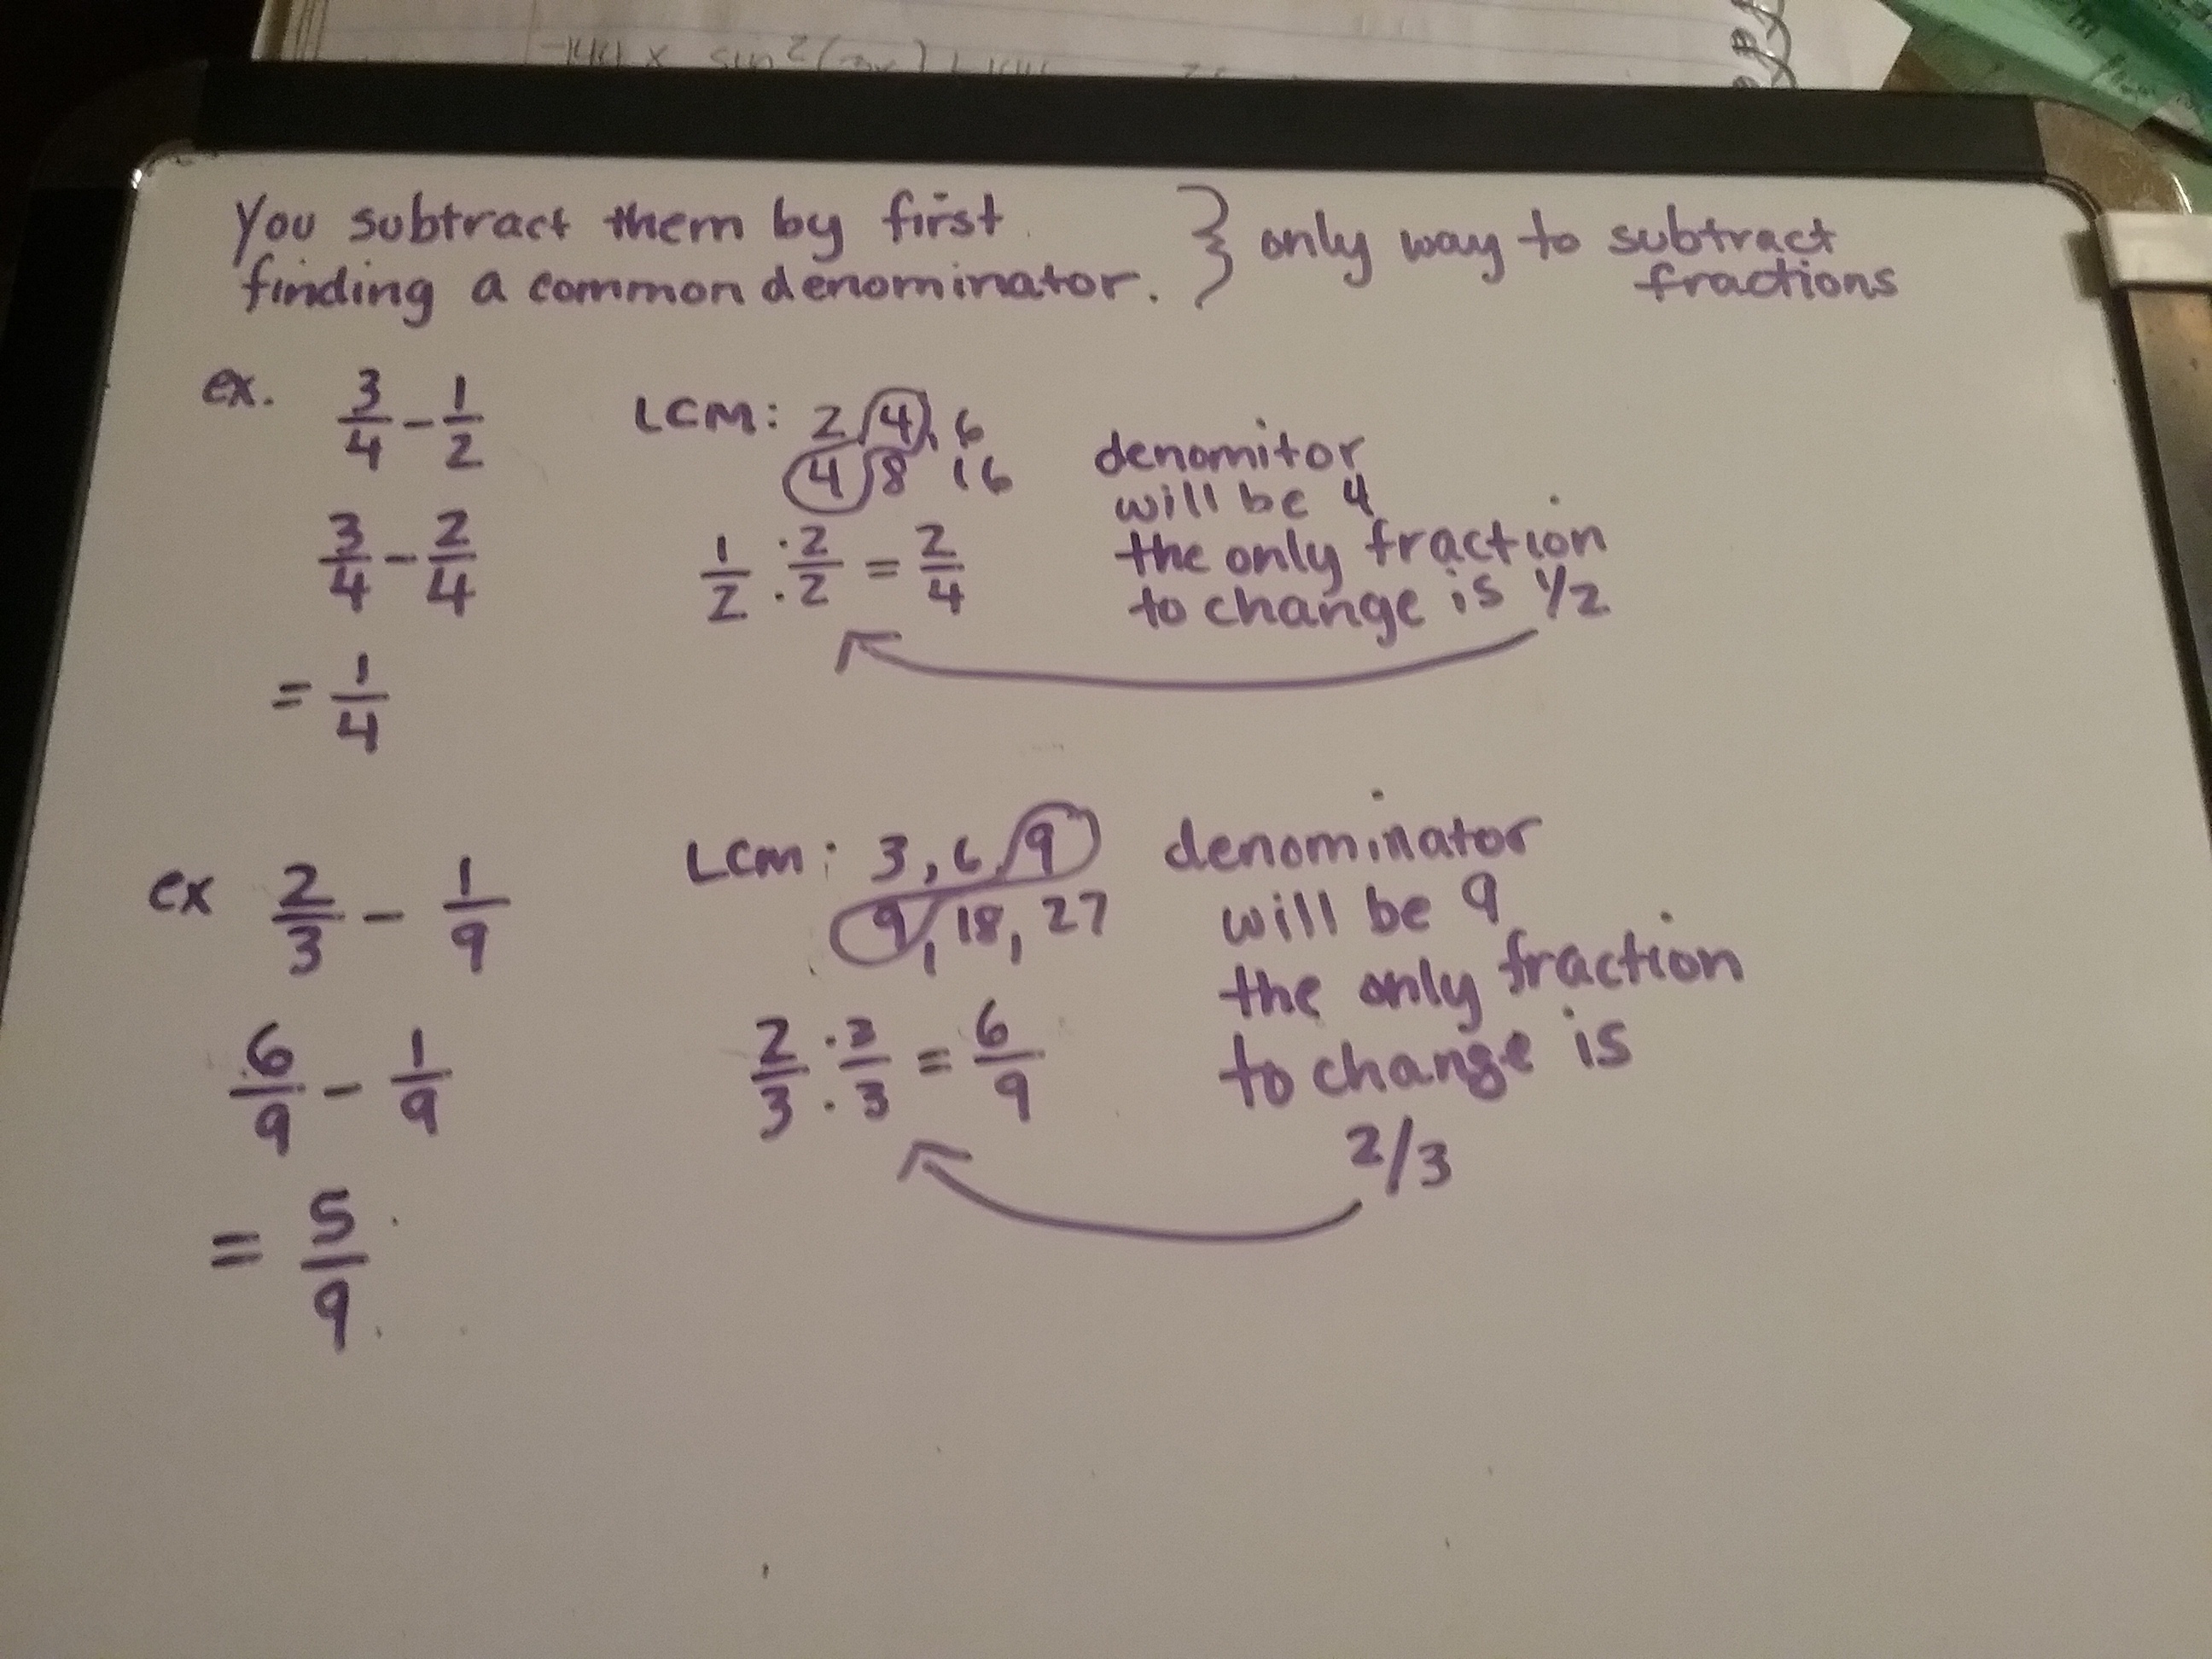 You subtract them by first
finding a common denominator. } only way to subtract
fractions
ex. 3/4 - 1/2
LCM: 2, 4, 6
4, 8 16
denomitor
will be 4
the only fraction
to change is 1/2
3/4 - 2/4
1/2 · 2/2 = 2/4
= 1/4
ex 2/3 - 1/9
LCM: 3, 6, 9
9, 18, 27
denominator
will be 9
the only fraction
to change is
2/3
6/9 - 1/9
2/3 · 3/3 = 6/9
= 5/9